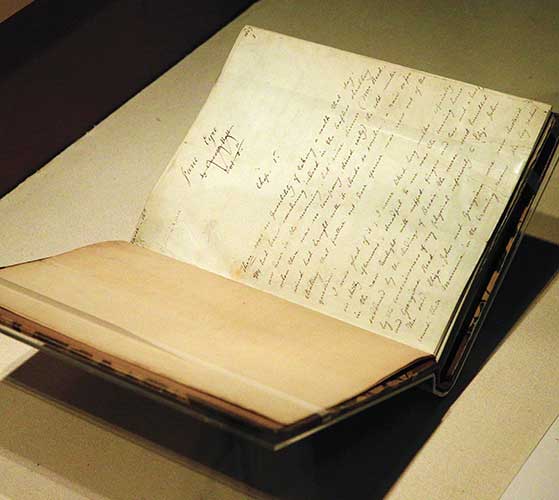 Jane Eyre
by Currer Bell
Vol. 1st
Chap. 1st
There was no possibility of taking a walk that day.
We had been wandering indeed in the leafless shrubbery
an hour in the morning, but since dinner (Mrs Reed,
when there was no company, dined early) the cold winter
wind had brought with it clouds so sombre, a rain so
penetrating that further out-door exercise was now out of the
question.
I was glad of it; I never liked long walks especially
on chilly afternoons; dreadful to me was the coming home
in the raw twilight with nipped fingers and toes and a heart
saddened by the chidings of Bessie, the nurse, and humbled
by the consciousness of my physical inferiority to Eliza, John
and Georgiana Reed.
The said Eliza, John and Georgiana were now clustered
round their mamma in the drawing-room